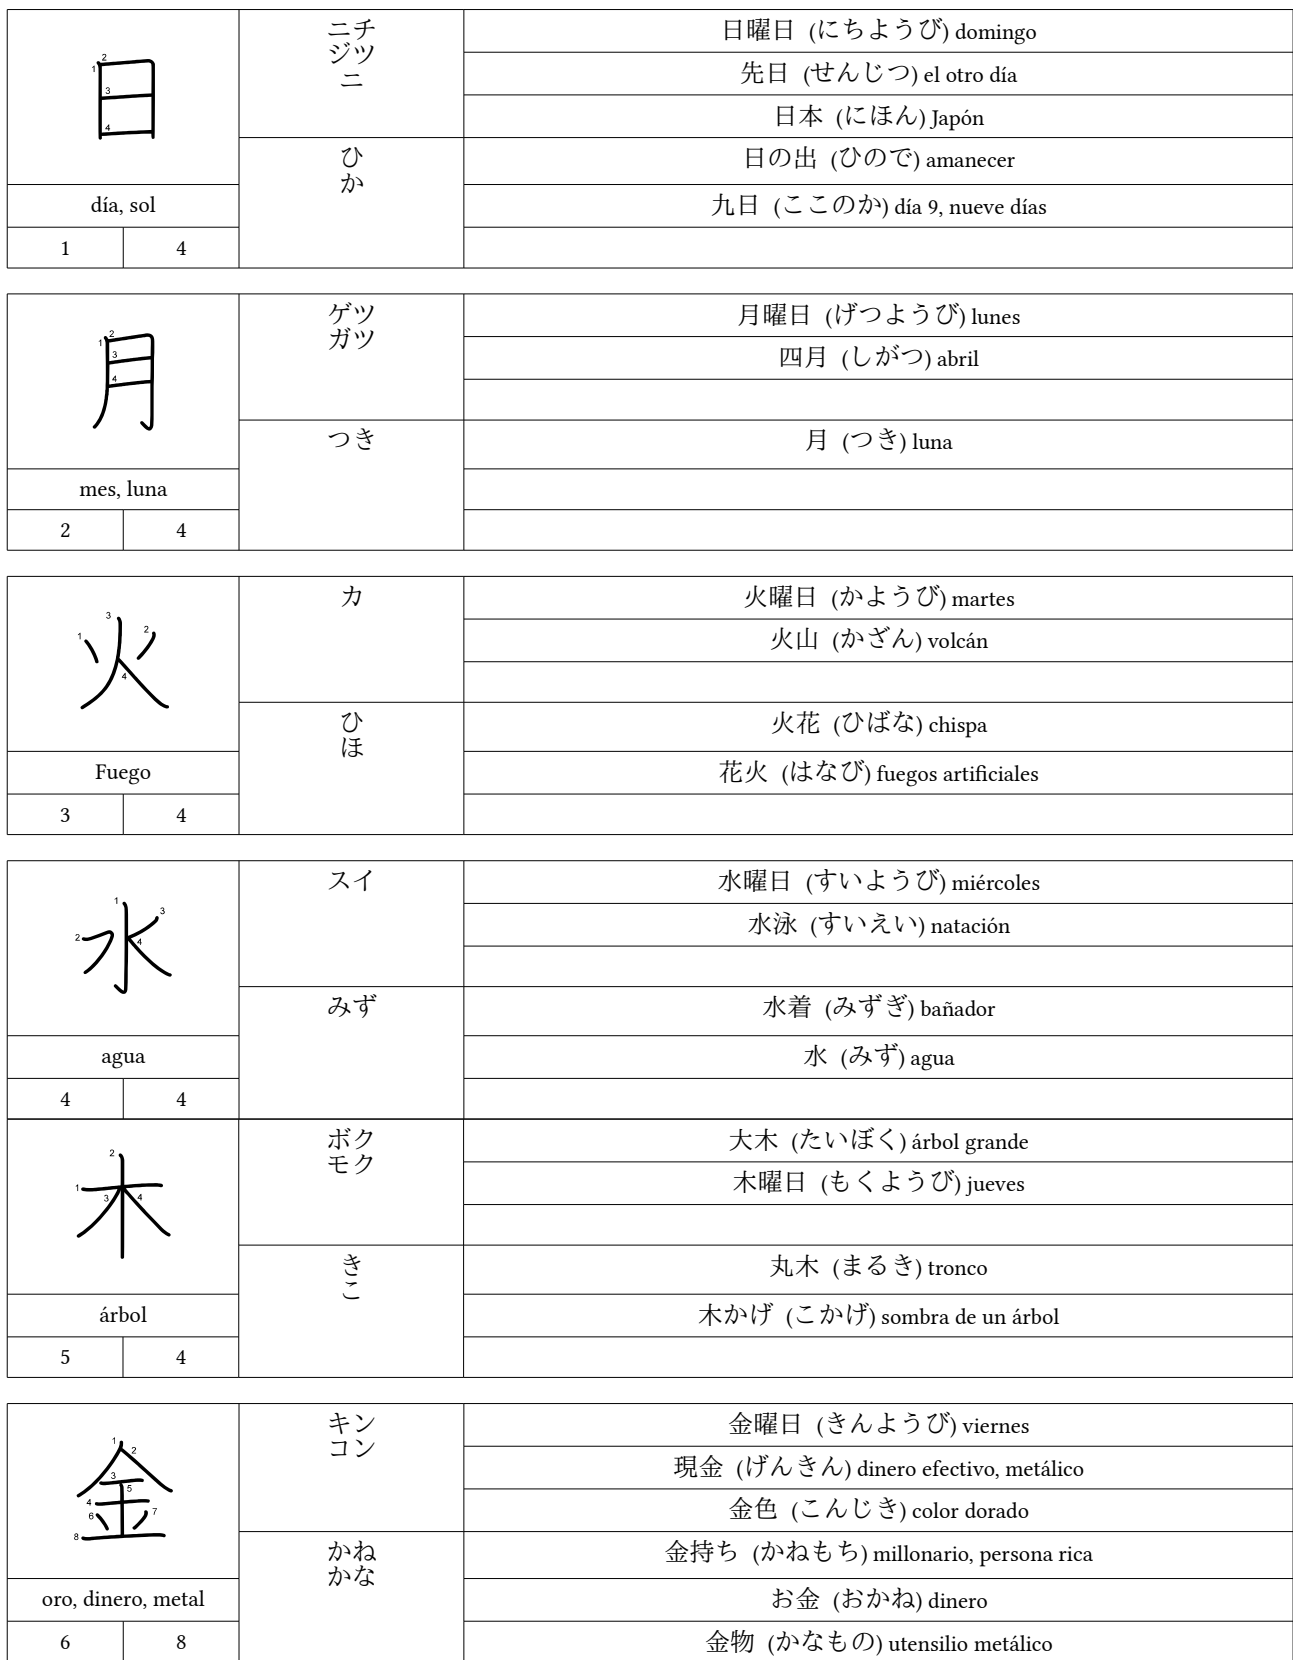 日
ニチ
ジツ
ニ
日曜日 (にちようび) domingo
先日 (せんじつ) el otro día
日本 (にほん) Japón
ひ
か
日の出 (ひので) amanecer
九日 (ここのか) día 9, nueve días
día, sol
1 4
月
ゲツ
ガツ
月曜日 (げつようび) lunes
四月 (しがつ) abril
つき
月 (つき) luna
mes, luna
2 4
火
カ
火曜日 (かようび) martes
火山 (かざん) volcán
ひ
ほ
火花 (ひばな) chispa
花火 (はなび) fuegos artificiales
Fuego
3 4
水
スイ
水曜日 (すいようび) miércoles
水泳 (すいえい) natación
みず
水着 (みずぎ) bañador
水 (みず) agua
agua
4 4
木
ボク
モク
大木 (たいぼく) árbol grande
木曜日 (もくようび) jueves
き
こ
丸木 (まるき) tronco
木かげ (こかげ) sombra de un árbol
árbol
5 4
金
キン
コン
金曜日 (きんようび) viernes
現金 (げんきん) dinero efectivo, metálico
金色 (こんじき) color dorado
かね
かな
金持ち (かねもち) millonario, persona rica
お金 (おかね) dinero
金物 (かなもの) utensilio metálico
oro, dinero, metal
6 8